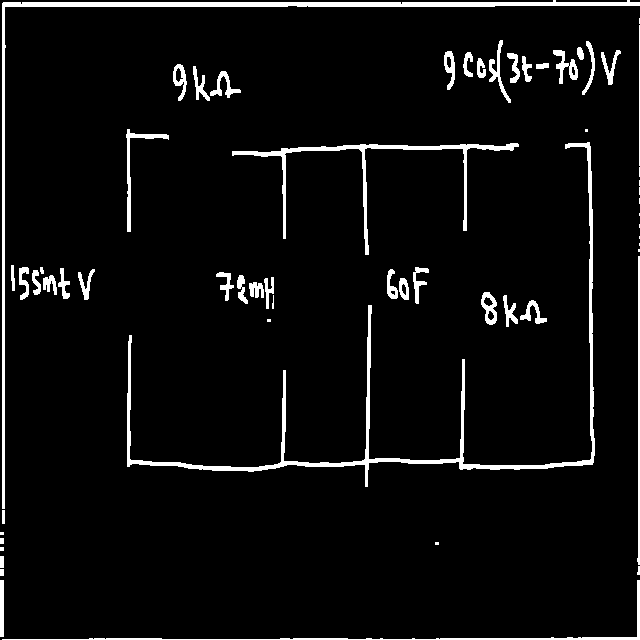 9kΩ
9cos(3t-70°)V
15sint V
72mH
60F
8kΩ